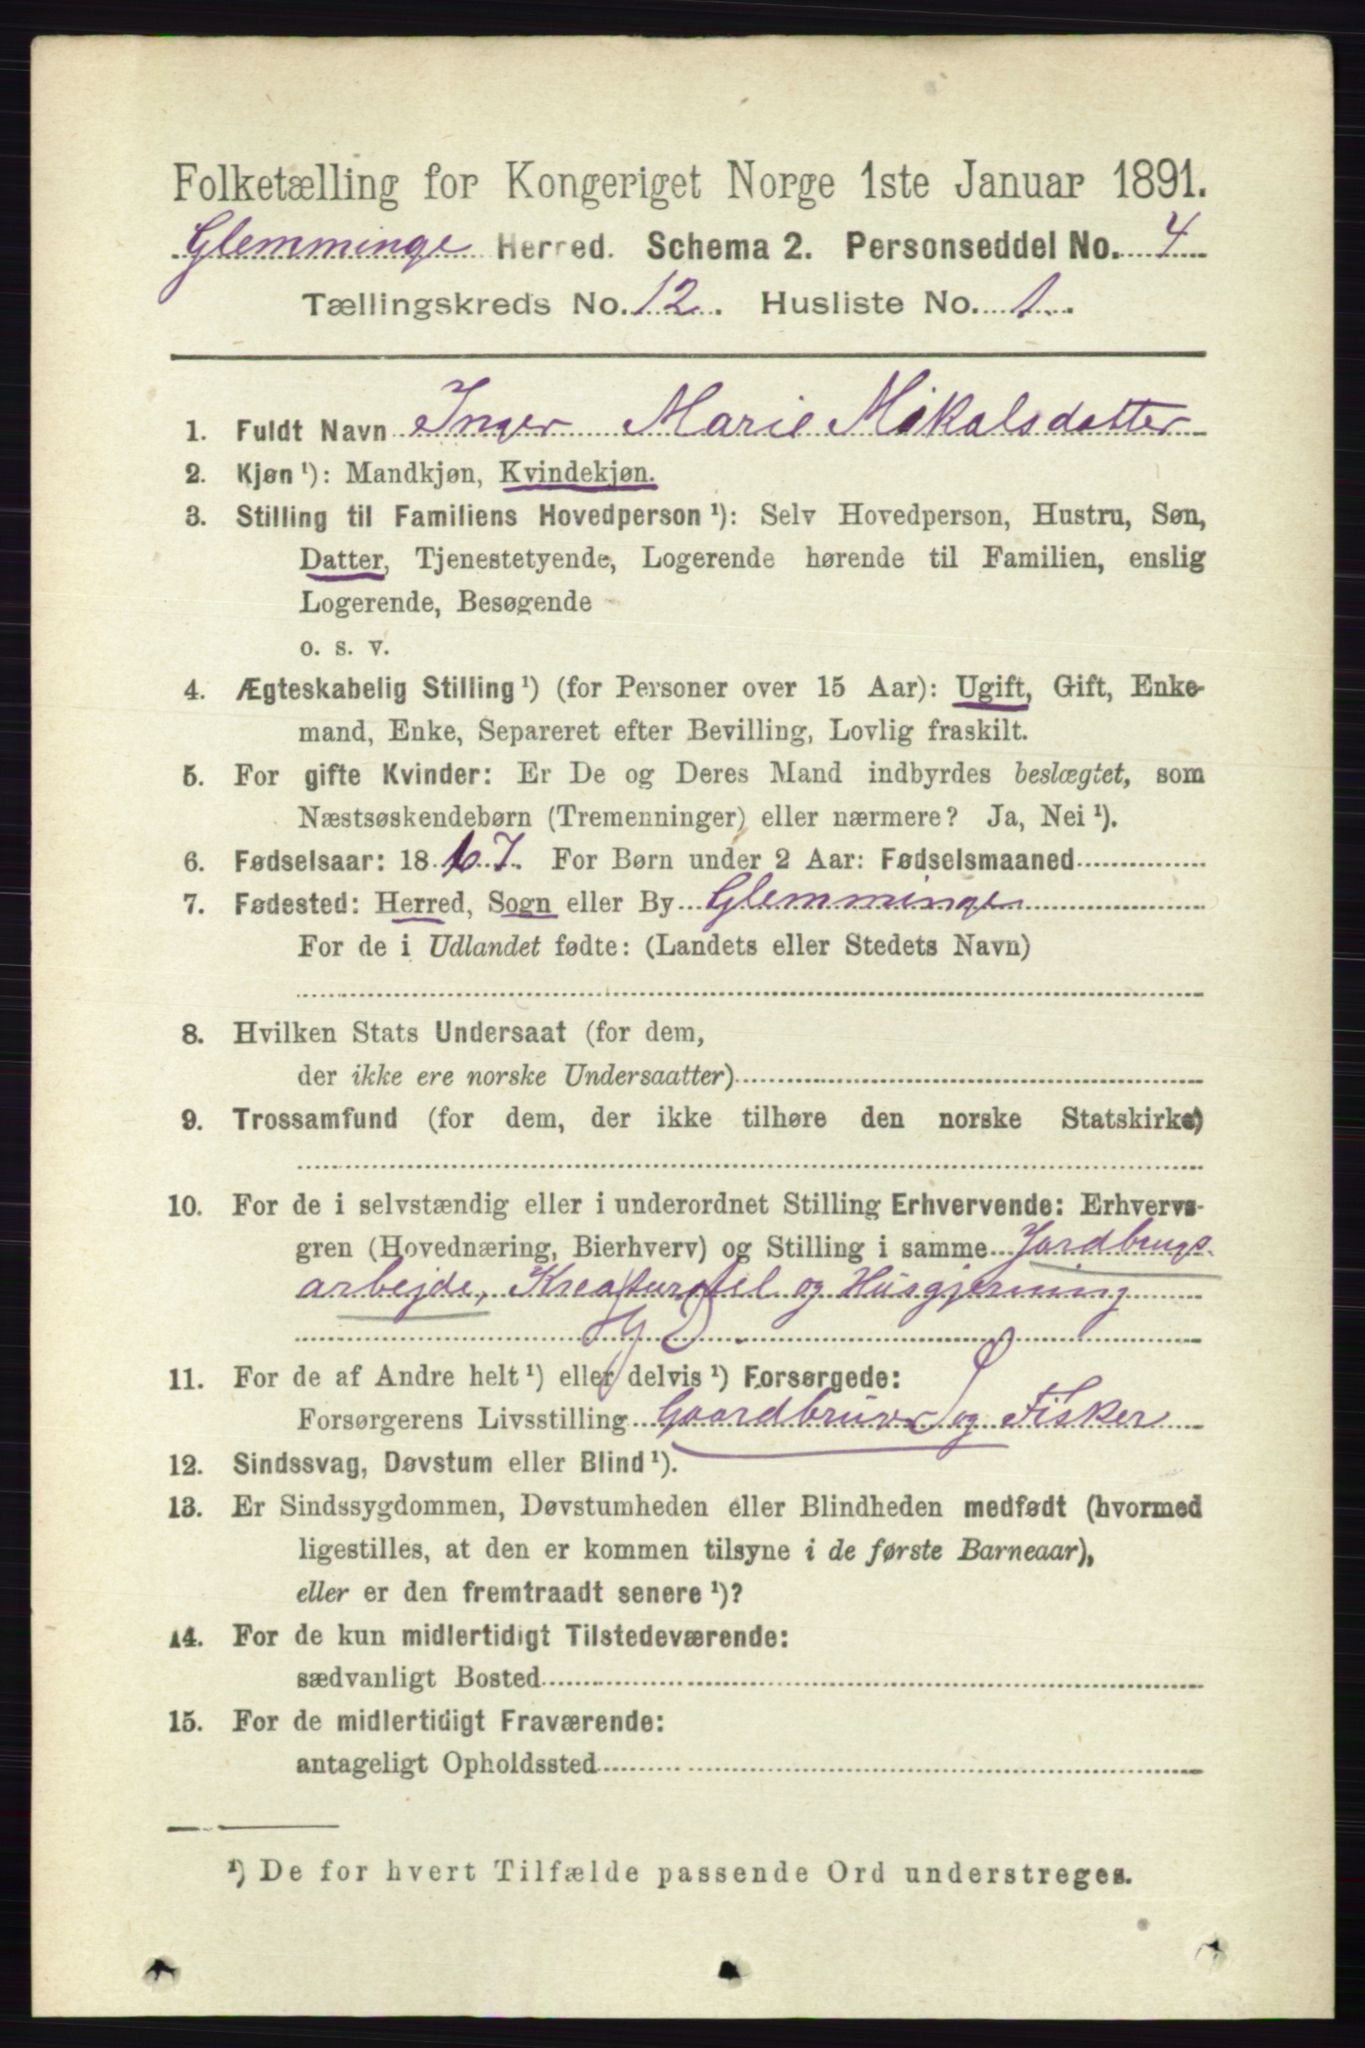 Folketælling for Kongeriget Norge 1ste Januar 1891.
Glemminge Herred. Schema 2. Personseddel No. 4
Tællingskreds No. 12. Husliste No. 1.
1. Fuldt Navn Inger Marie Mikalsdatter
2. Kjøn ¹): Mandkjøn, Kvindekjøn.
3. Stilling til Familiens Hovedperson ¹): Selv Hovedperson, Hustru, Søn,
Datter, Tjenestetyende, Logerende hørende til Familien, enslig
Logerende, Besøgende
o. s. v.
4. Ægteskabelig Stilling ¹) (for Personer over 15 Aar): Ugift, Gift, Enke-
mand, Enke, Separeret efter Bevilling, Lovlig fraskilt.
5. For gifte Kvinder: Er De og Deres Mand indbyrdes beslægtet, som
Næstsøskendebørn (Tremenninger) eller nærmere? Ja, Nei ¹).
6. Fødselsaar: 1867. For Børn under 2 Aar: Fødselsmaaned
7. Fødested: Herred, Sogn eller By Glemminge
For de i Udlandet fødte: (Landets eller Stedets Navn)
8. Hvilken Stats Undersaat (for dem,
der ikke ere norske Undersaatter)
9. Trossamfund (for dem, der ikke tilhøre den norske Statskirke)
10. For de i selvstændig eller i underordnet Stilling Erhvervende: Erhvervs-
gren (Hovednæring, Bierhverv) og Stilling i samme Jordbrugs-
arbejde, Kreaturstel og Husgjerning
11. For de af Andre helt ¹) eller delvis ¹) Forsørgede:
Forsørgerens Livsstilling Gaardbruver og Fisker
12. Sindssvag, Døvstum eller Blind ¹).
13. Er Sindssygdommen, Døvstumheden eller Blindheden medfødt (hvormed
ligestilles, at den er kommen tilsyne i de første Barneaar),
eller er den fremtraadt senere ¹)?
14. For de kun midlertidigt Tilstedeværende:
sædvanligt Bosted
15. For de midlertidigt Fraværende:
antageligt Opholdssted
¹) De for hvert Tilfælde passende Ord understreges.